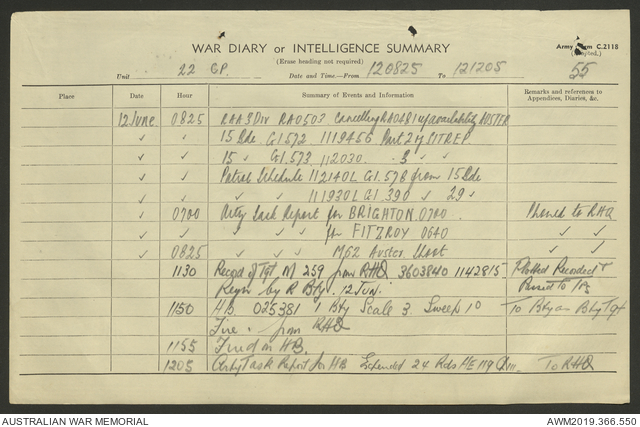 WAR DIARY or INTELLIGENCE SUMMARY
Army Form C.2118
(Erase heading not required)
(Adapted.)
Unit 22 GP. Date and Time.—From 120825 To 121205
55
Place Date Hour Summary of Events and Information Remarks and references to Appendices, Diaries, &c.
12 June 0825 RAA 3 Div RA0503 Cancelling RA0481 availability AUSTER
✓ ✓ 15 Bde G1572 111945G Part 2 of SITREP
✓ ✓ 15 " G1573 112030 " 3 " "
✓ ✓ Patrol Schedule 112140L G1578 from 15 Bde
✓ ✓ " " 111930L G1390 " 29 "
✓ 0700 Arty Task Report for BRIGHTON 0700 Phoned to RHQ
✓ ✓ " " " for FITZROY 0640 ✓ ✓
✓ 0825 " " " M62 Auster Shoot ✓ ✓
1130 Record of Tgt M 259 from RHQ 3603840 1142815 Plotted Recorded &
Regn by R Bty. 12 JUN.
1150 HB 025381 1 Bty Scale 3 Sweep 10 To Bty as Bty Tgt
Fire. from RHQ
1155 Fired on HB.
1205 Arty Task Report for HB Expended 24 Rds HE 119 To RHQ
AUSTRALIAN WAR MEMORIAL AWM2019.366.550